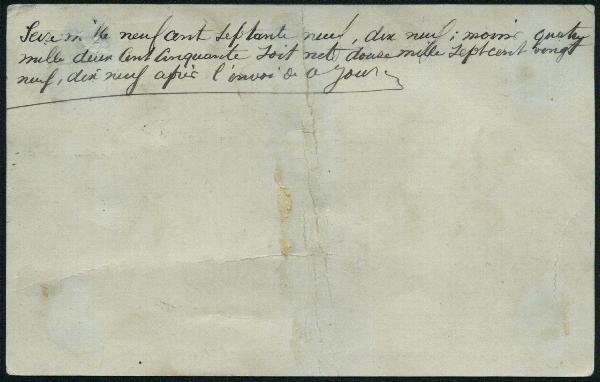 Seize mille neuf cent septante neuf, dix neuf; moins quatre
mille deux cent cinquante soit net douse mille sept cent vingt
neuf, dix neuf après l'envoi de ce jour